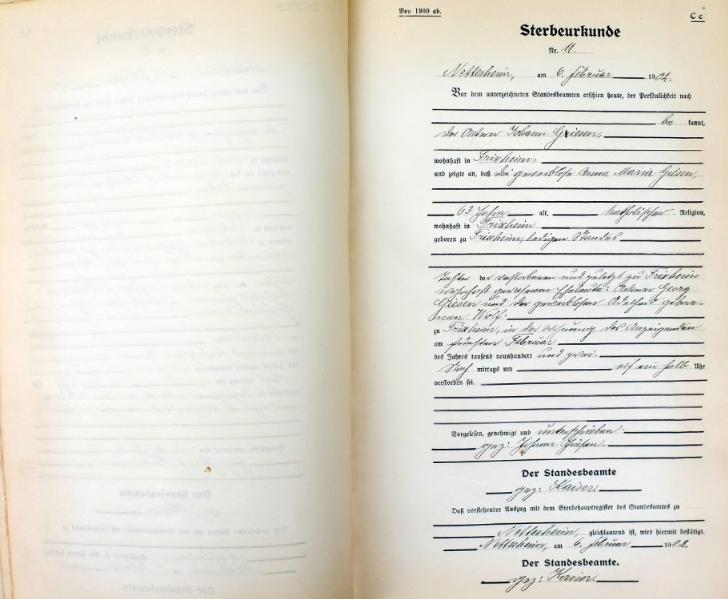 Von 1900 ab.
C c
Sterbeurkunde
Nr. 11
Nettersheim, am 6. Februar 1902.
Vor dem unterzeichneten Standesbeamten erschien heute, der Persönlichkeit nach
be kannt,
der Ackerer Johann Giesen,
wohnhaft in Frixheim,
und zeigte an, daß die gewerblose Anna Maria Giesen,
63 Jahre alt, katholischer Religion,
wohnhaft in Frixheim
geboren zu Frixheim, ledigen Standes
Tochter der verstorbenen und zuletzt zu Frixheim
wohnhaft gewesenen Eheleute: Ackerer Georg
Giesen und der gewerblosen
Wolf
zu Frixheim, in der Wohnung des Anzeigenden
am fünften Februar
des Jahres tausend neunhundert und zwei
Nach mittags um elf ein halb Uhr
verstorben sei.
Vorgelesen, genehmigt und unterschrieben
gez: Johann Giesen
Der Standesbeamte
gez: Kaiser
Daß vorstehender Auszug mit dem Sterbehauptregister des Standesamtes zu
Nettersheim, gleichlautend ist, wird hiermit bestätigt.
Nettersheim, am 6. Februar 1902.
Der Standesbeamte.
gez: Kaiser